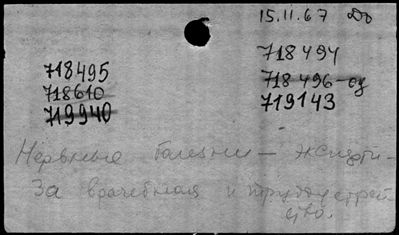 15.II.67
718495
718610
719940
718494
718 496-од
719143
Нервные болезни -
За врачебная и трудоустрой
ство.